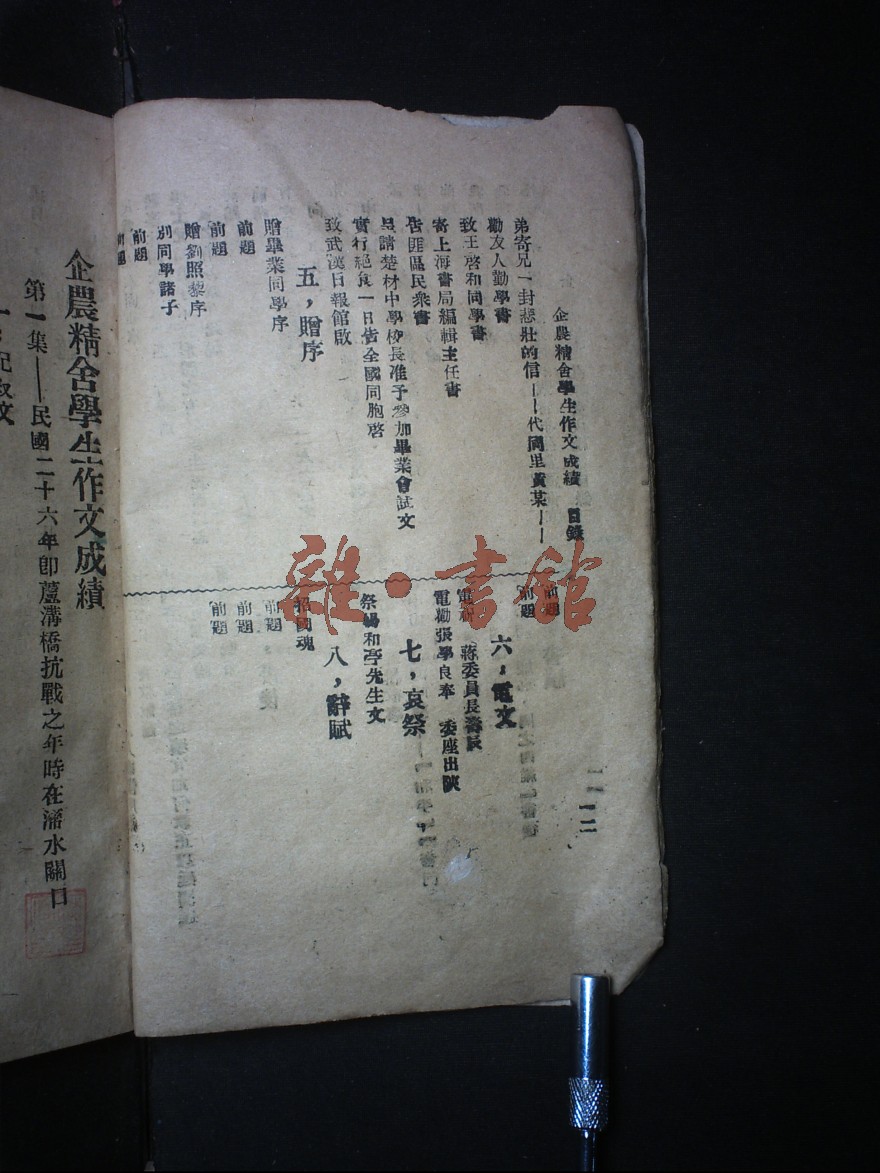 企農精舍學生作文成績　目錄
弟寄兄一封悲壯的信——代同里黃某——
勸友人勤學書
致王啓和同學書
寄上海書局編輯主任書
告匪區民衆書
呈請楚材中學校長准予參加畢業會試文
實行絕食一日告全國同胞啓
致武漢日報館啟
五，贈序
贈畢業同學序
前題
前題
贈劉照藜序
別同學諸子
前題
前題
前題
前題
六，電文
電祝　蔣委員長壽辰
電勸張學良奉　委座出陝
七，哀祭
祭楊和亭先生文
八，辭賦
招國魂
前題
前題
前題
企農精舍學生作文成績
第一集——民國二十六年卽蘆溝橋抗戰之年時在灄水關口
一，記敘文
雜·書館